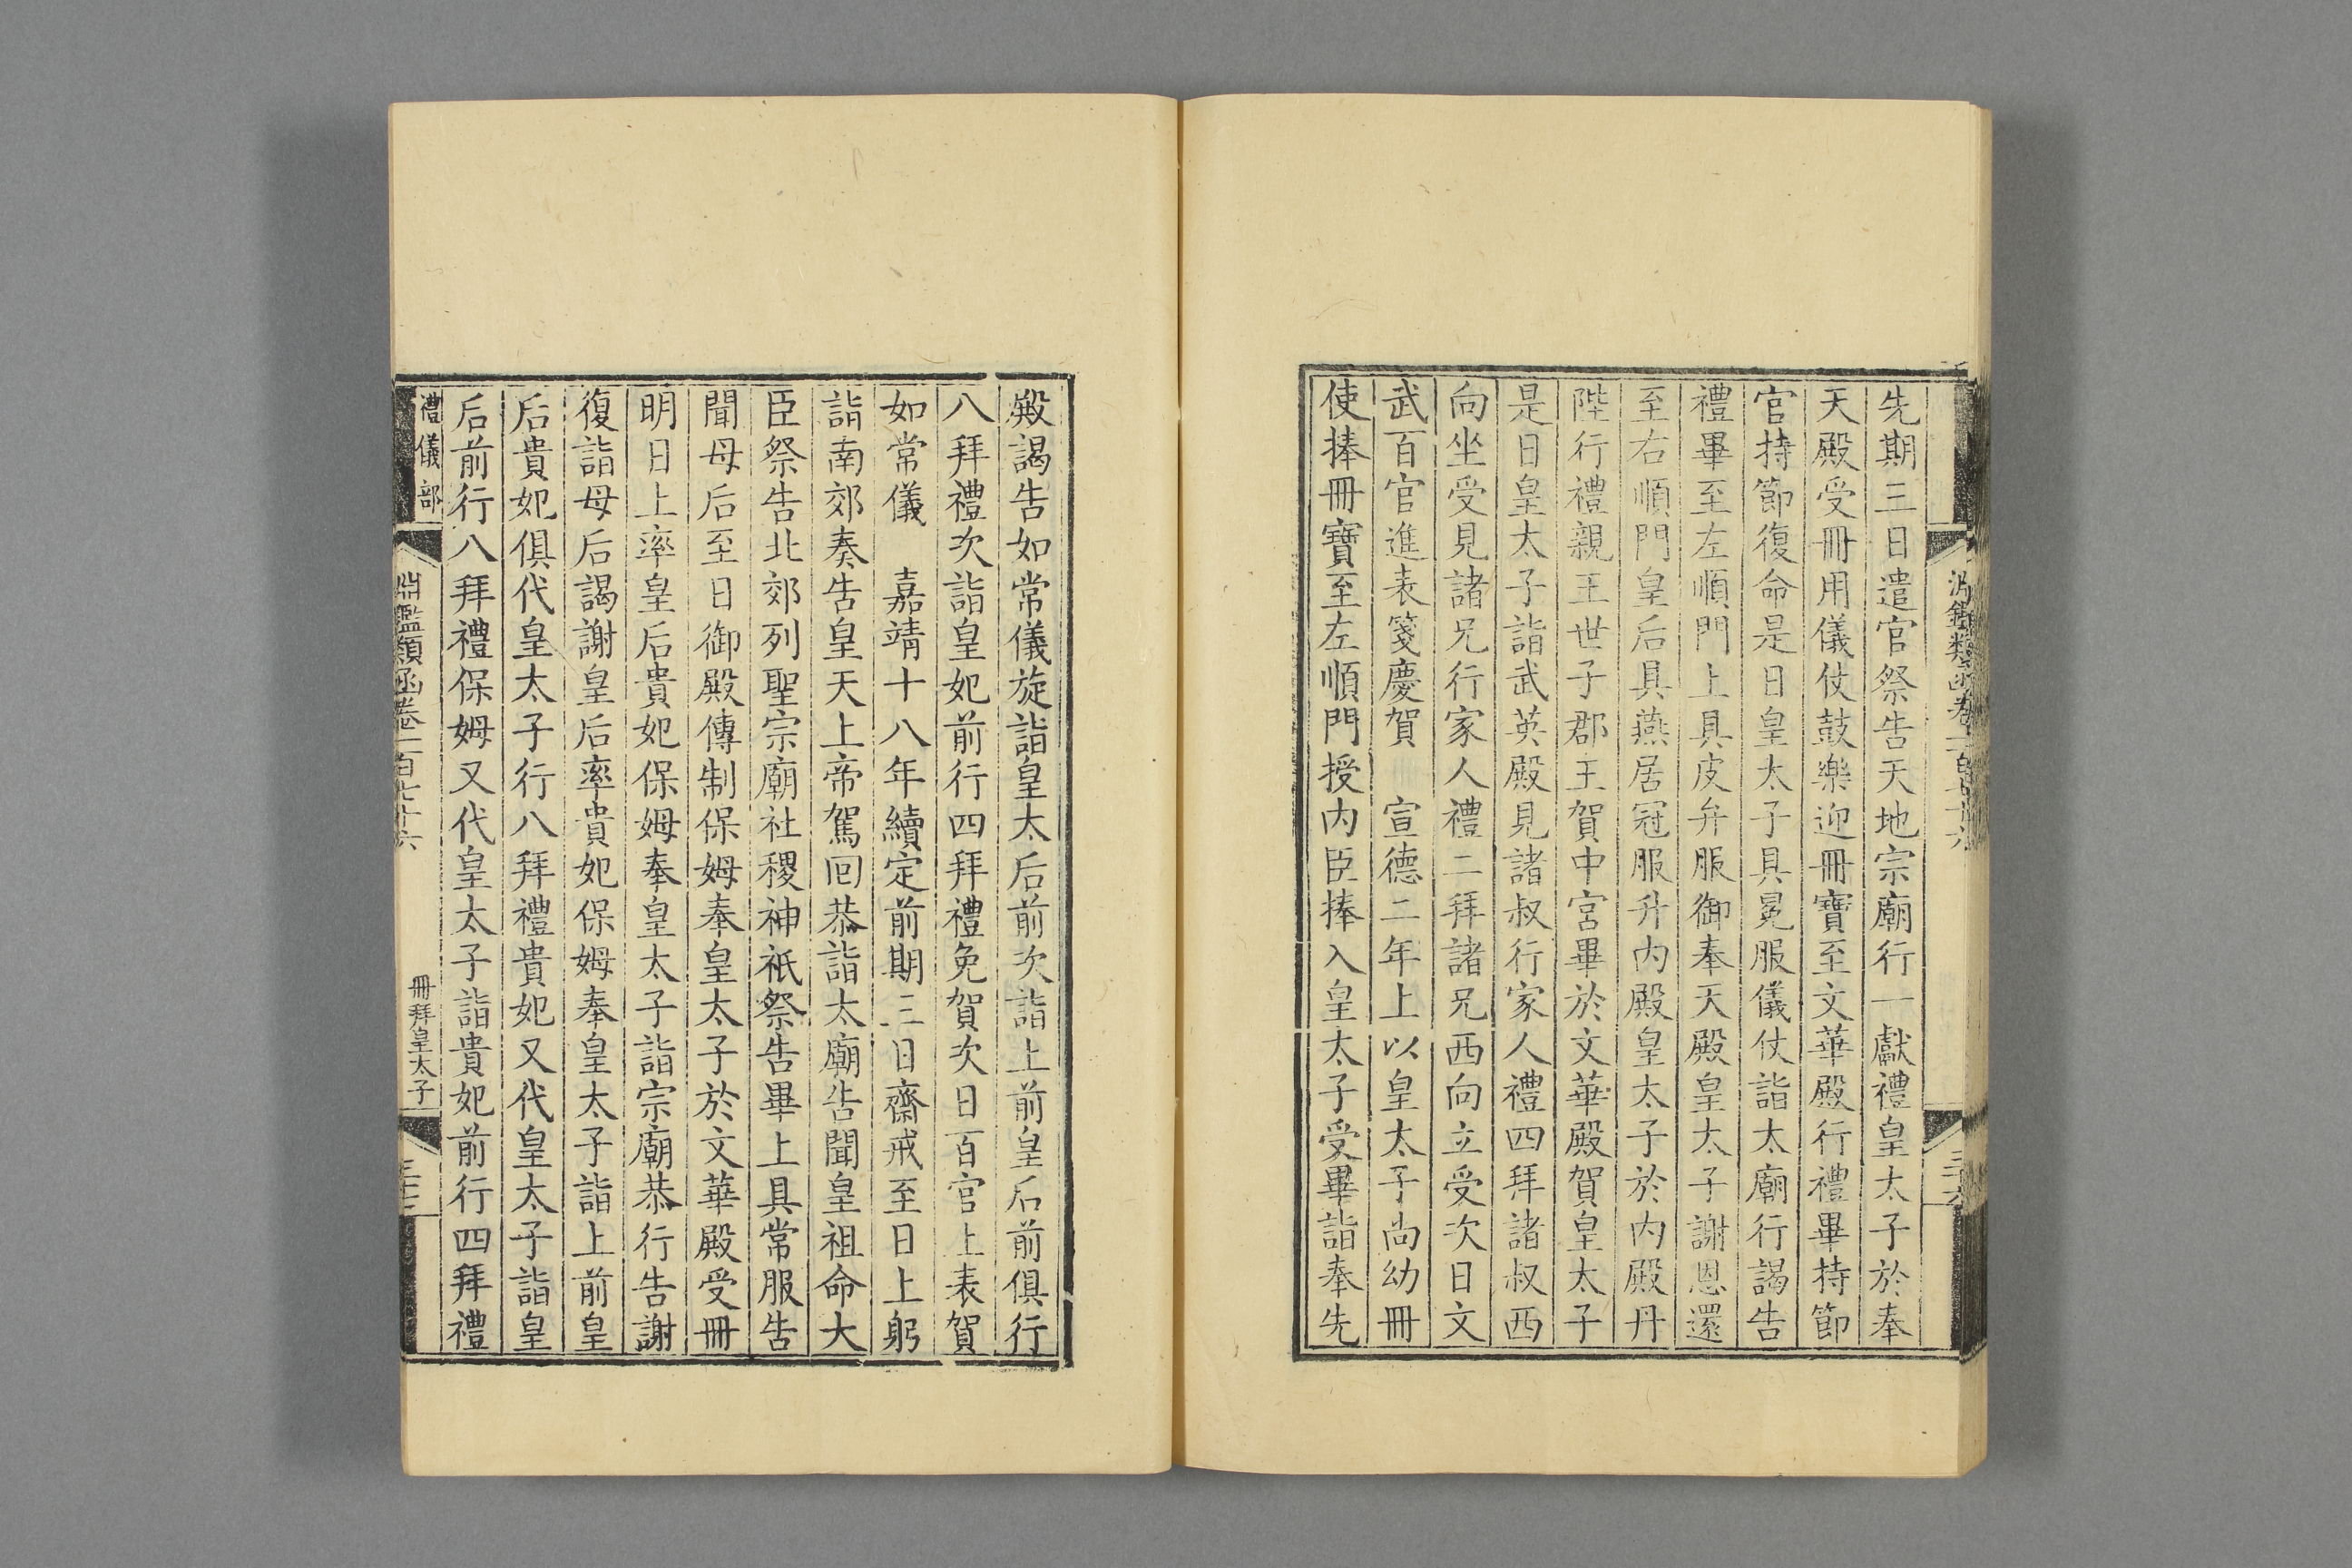 先期三日遣官祭告天地宗廟行一獻禮皇太子於奉
天殿受冊用儀仗鼓樂迎冊寶至文華殿行禮畢持節
官持節復命是日皇太子具冕服儀仗詣太廟行謁告
禮畢至左順門上具皮弁服御奉天殿皇太子謝恩還
至右順門皇后具燕居冠服升內殿皇太子於內殿丹
陛行禮親王世子郡王賀中宮畢於文華殿賀皇太子
是日皇太子詣武英殿見諸叔行家人禮四拜諸叔西
向坐受見諸兄行家人禮二拜諸兄西向立受次日文
武百官進表箋慶賀　宣德二年上以皇太子尚幼冊
使捧冊寶至左順門授內臣捧入皇太子受畢詣奉先
殿謁告如常儀旋詣皇太后前次詣上前皇后前俱行
八拜禮次詣皇妃前行四拜禮免賀次日百官上表賀
如常儀　嘉靖十八年續定前期三日齋戒至日上躬
詣南郊奏告皇天上帝駕回恭詣太廟告聞皇祖命大
臣祭告北郊列聖宗廟社稷神祇祭告畢上具常服告
聞母后至日御殿傳制保姆奉皇太子於文華殿受冊
明日上率皇后貴妃保姆奉皇太子詣宗廟恭行告謝
復詣母后謁謝皇后率貴妃保姆奉皇太子詣上前皇
后貴妃俱代皇太子行八拜禮貴妃又代皇太子詣皇
后前行八拜禮保姆又代皇太子詣貴妃前行四拜禮
禮儀部
淵鑑類函卷一百七十六
冊拜皇太子
三十七